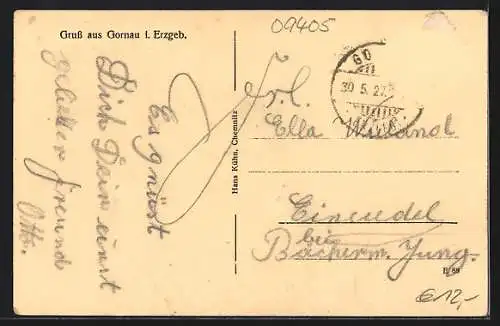 Gruß aus Gornau i. Erzgeb.
09405
Es grüst
Dich Dein einst
geliebter Freund
Otto.
Hans Kühn, Chemnitz
GO
30.5.27.
Frl.
Ella Wieland
Einsiedel
bei
Bäckerm. Jung.
B 89
€12,-